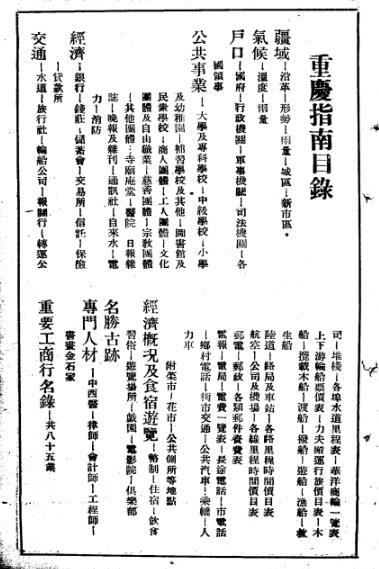 重慶指南目錄
疆域－沿革－形勢－雨量－城區－新市區・
氣候－溫度－雨量
戶口－國府－行政機關－軍事機關－司法機關－各
國領事
公共事業－大學及專科學校－中級學校－小學
及幼稚園－補習學校及其他－圖書館及
民衆學校－商人團體－工人團體－文化
團體及自由職業－慈善團體－宗教團體
－其他團體…寺廟庵堂－醫院 日報雜
誌－晚報及雜刊－通訊社－自來水－電
力－消防
經濟－銀行－錢莊－儲蓄會－交易所－信託－保險
－貸款所
交通－水道－旅行社－輪船公司－報關行－轉運公
司－堆棧－各埠水道里程表－華洋商輪一覽表
上下游輪船票價表－力夫搬運行旅價目表－木
船－攬載木船－渡船－撥船－遊船－漁船－救
生船
陸道－路局及車站－各路里程時間價目表
航空－公司及機場－各線里程時間價目表
郵電－郵政－各類郵件資費表
電報－電局－電費一覽表－長途電話－市電話
－鄉村電話－街市交通－公共汽車－乘轎－人
力車
附菜市－花市－公共廁所等地點
經濟概况及食宿遊覽－幣制－住宿－飲食
習俗－遊覽場所－戲園－電影院－俱樂部
名勝古跡
專門人材－中西醫－律師－會計師－工程師－
書畫金石家
重要工商行名錄－共八十五業